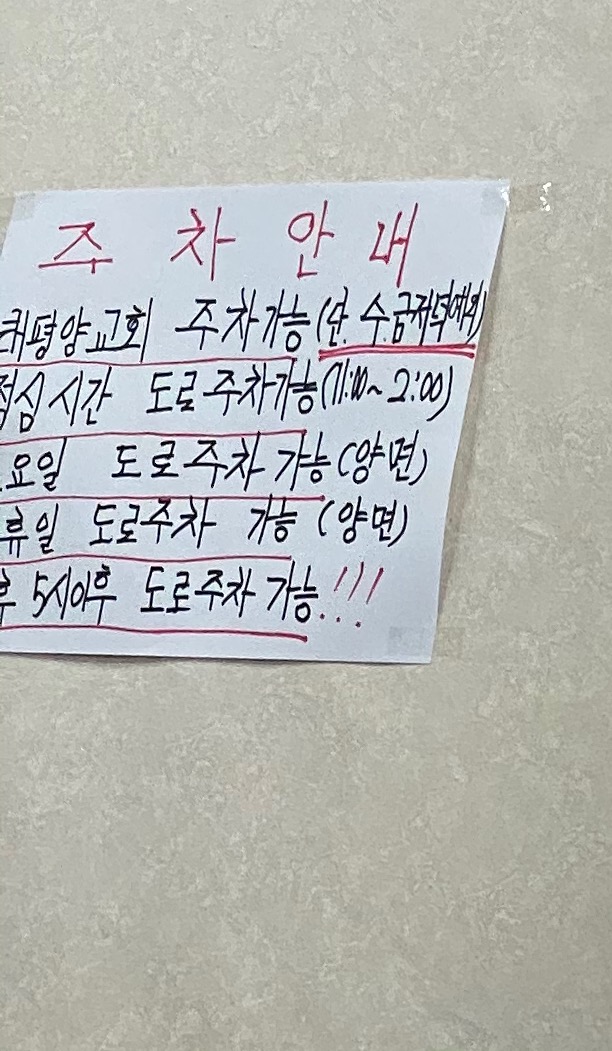 주 차 안 내
태평양교회 주차가능 (단. 수.금저녁예외)
점심시간 도로주차가능 (11:00~2:00)
요일 도로주차 가능 (양면)
휴일 도로주차 가능 (양면)
후 5시이후 도로주차 가능!!!